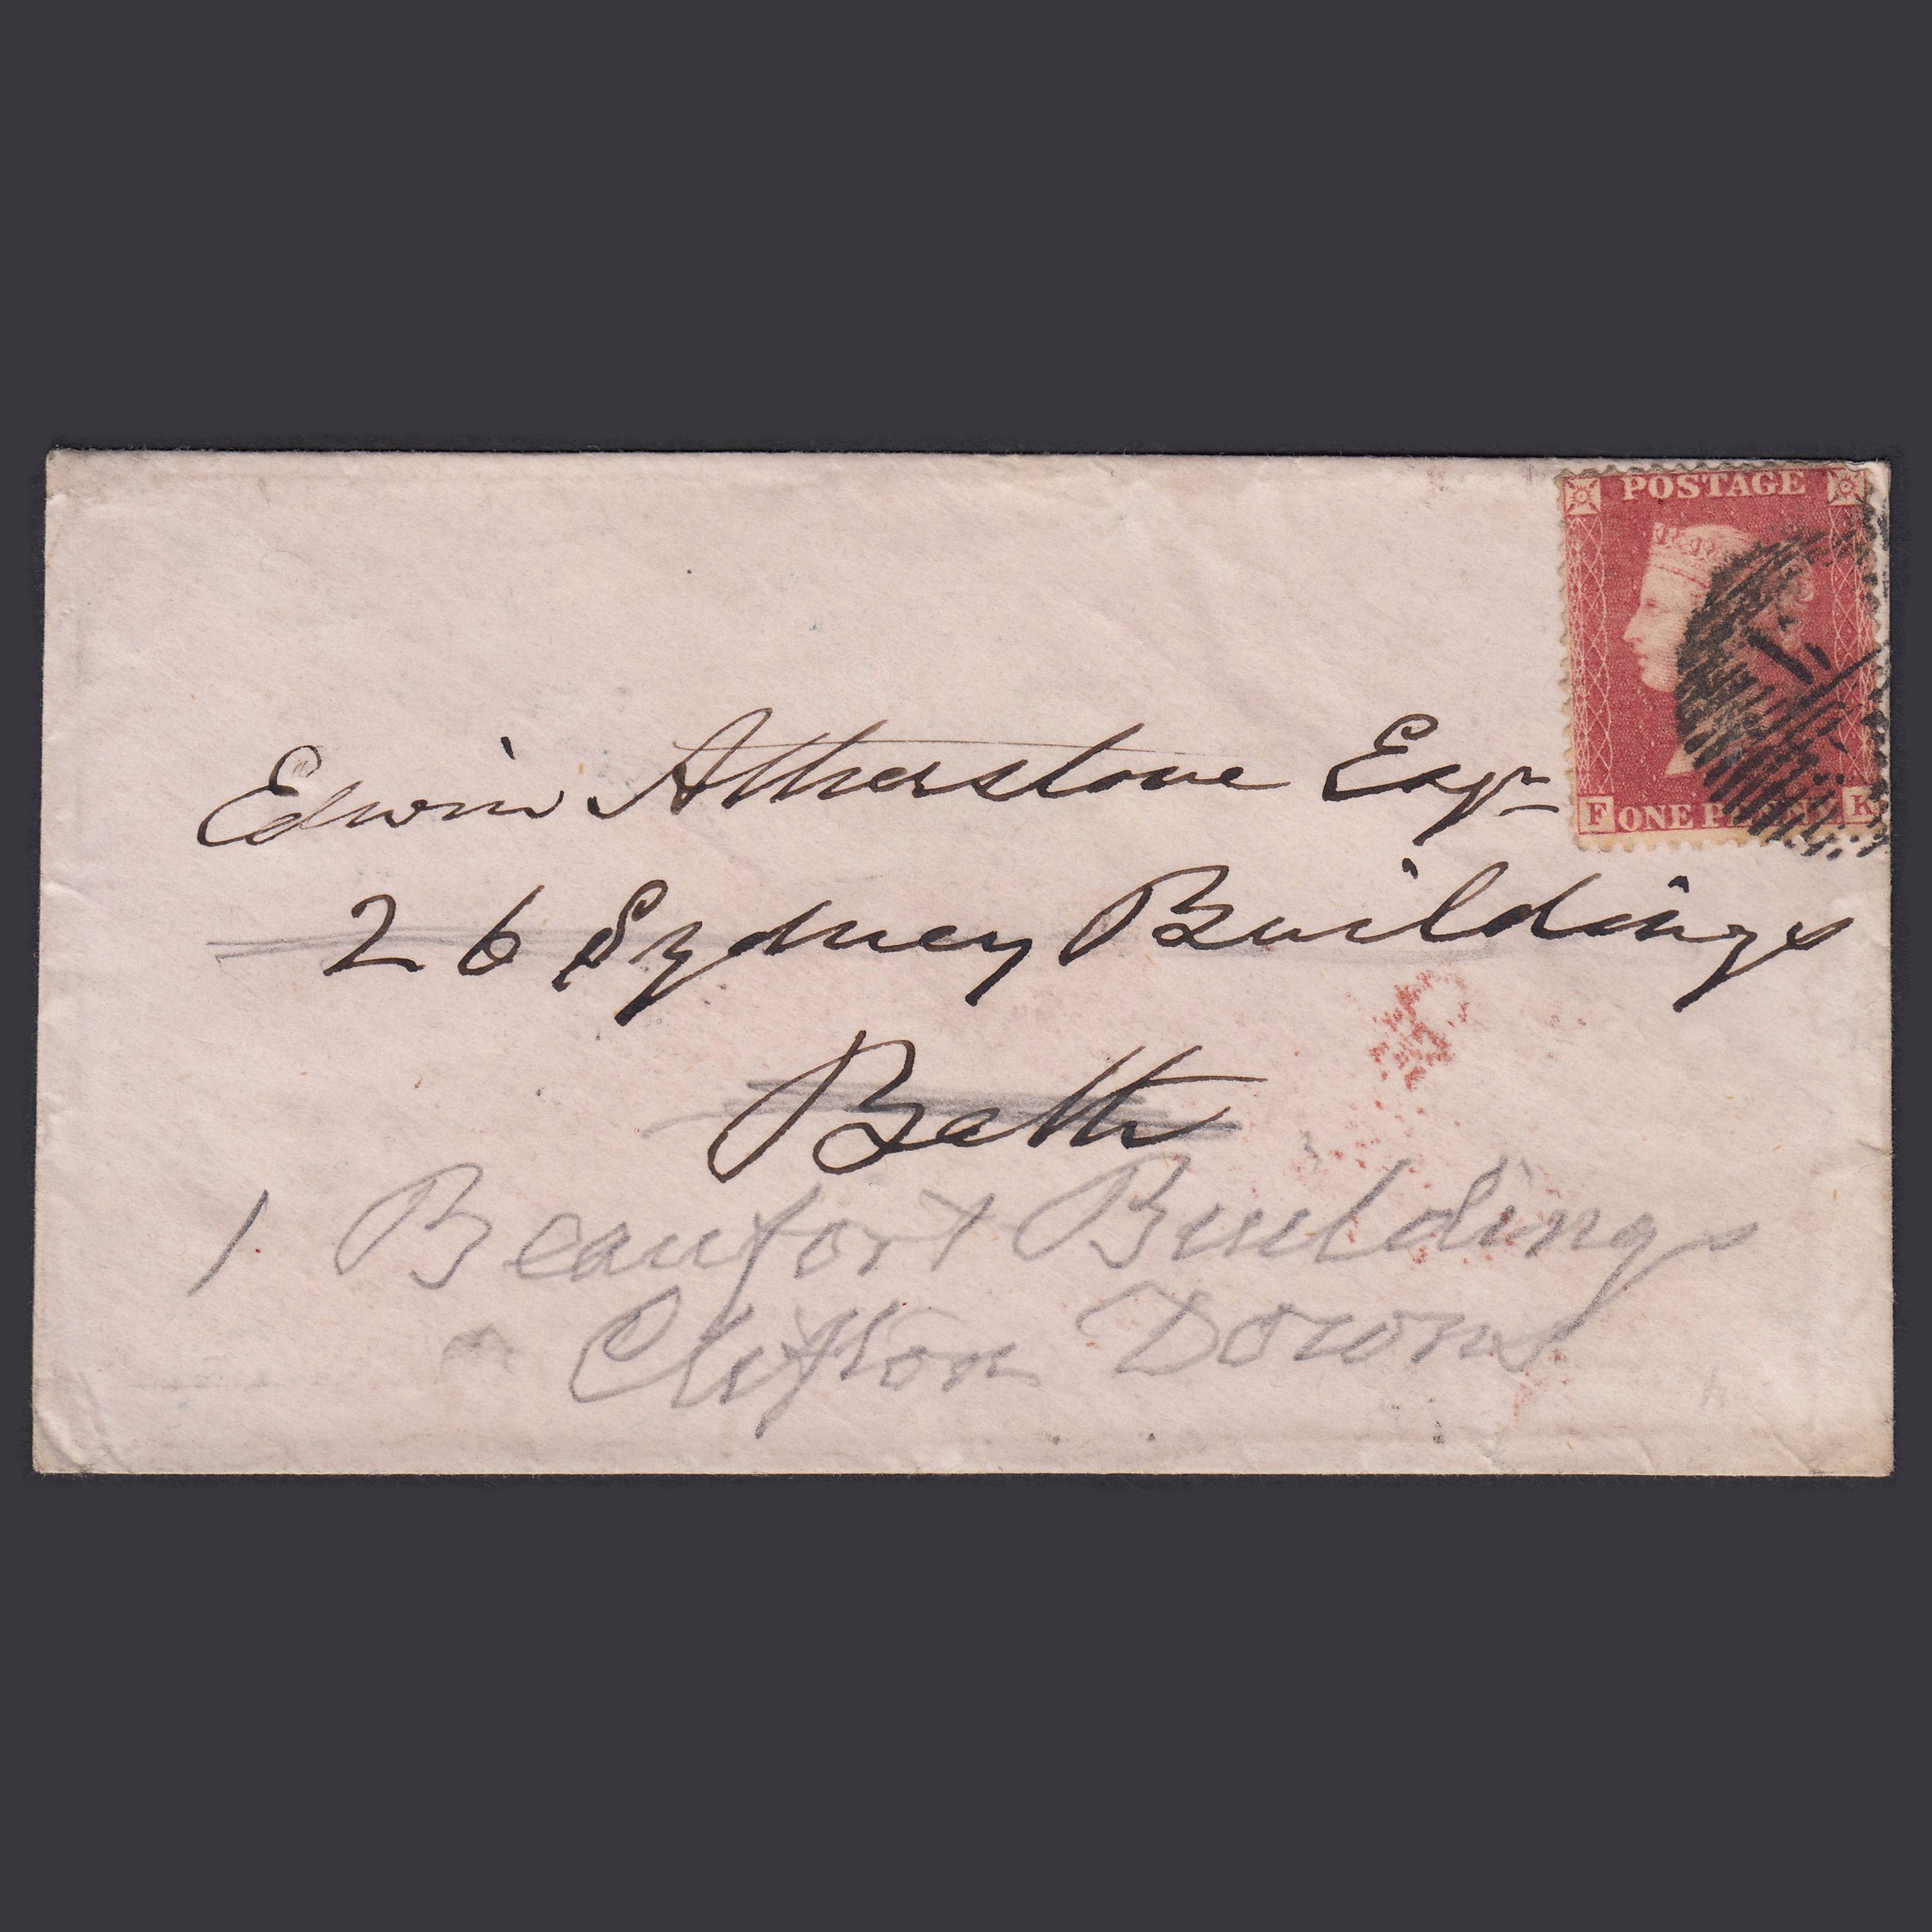 POSTAGE
F ONE PENNY K
Edwin Atherstone Esqr
26 Sydney Buildings
Bath
1 Beaufort Buildings
Clifton Downs